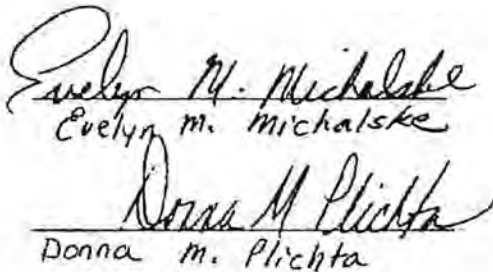 Evelyn M. Michalske
Evelyn m. michalske
Donna M Plichta
Donna m. Plichta